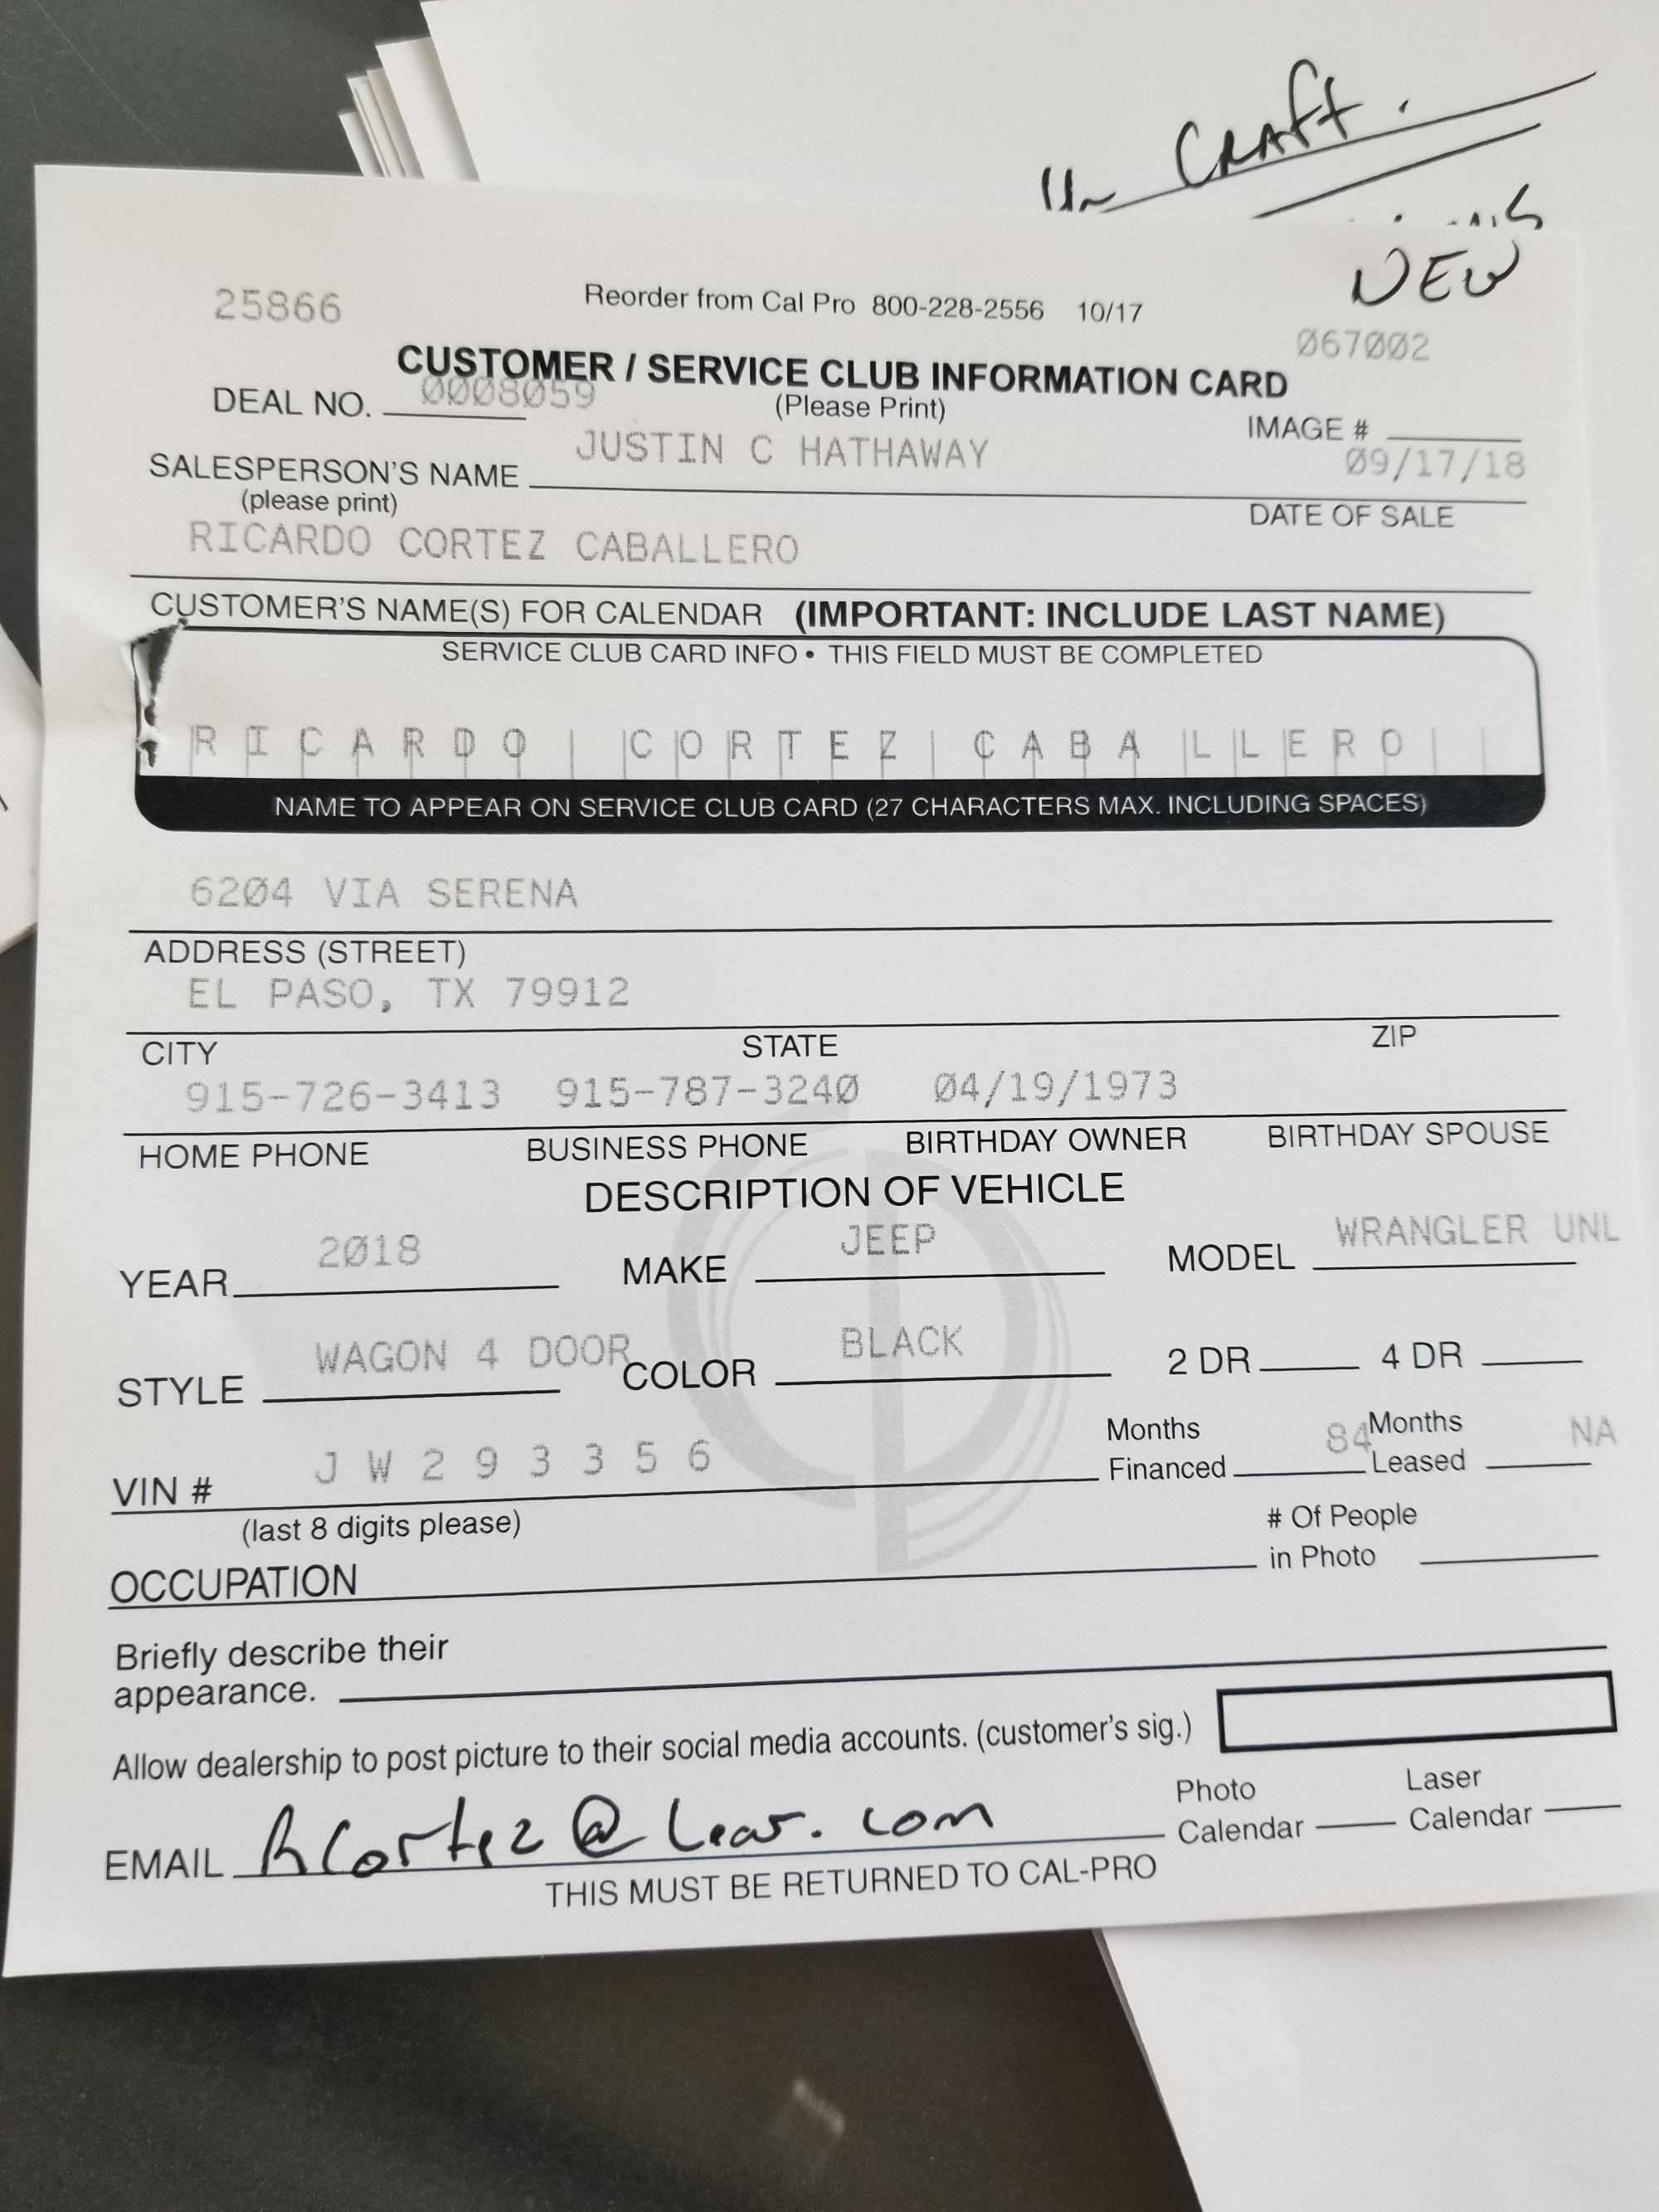 CRAFT.
NEW
25866 Reorder from Cal Pro 800-228-2556 10/17
Ø67ØØ2
CUSTOMER / SERVICE CLUB INFORMATION CARD
DEAL NO. ØØØ8Ø59 (Please Print)
IMAGE #
SALESPERSON'S NAME JUSTIN C HATHAWAY Ø9/17/18
(please print) DATE OF SALE
RICARDO CORTEZ CABALLERO
CUSTOMER'S NAME(S) FOR CALENDAR (IMPORTANT: INCLUDE LAST NAME)
SERVICE CLUB CARD INFO • THIS FIELD MUST BE COMPLETED
RICARDO CORTEZ CABALLERO
NAME TO APPEAR ON SERVICE CLUB CARD (27 CHARACTERS MAX. INCLUDING SPACES)
62Ø4 VIA SERENA
ADDRESS (STREET)
EL PASO, TX 79912
CITY STATE ZIP
915-726-3413 915-787-324Ø Ø4/19/1973
HOME PHONE BUSINESS PHONE BIRTHDAY OWNER BIRTHDAY SPOUSE
DESCRIPTION OF VEHICLE
YEAR 2Ø18 MAKE JEEP MODEL WRANGLER UNL
STYLE WAGON 4 DOOR COLOR BLACK 2 DR 4 DR
VIN # J W 2 9 3 3 5 6 Months Financed 84 Months Leased NA
(last 8 digits please)
OCCUPATION # Of People in Photo
Briefly describe their
appearance.
Allow dealership to post picture to their social media accounts. (customer's sig.)
EMAIL RCortez@Lear.com Photo Calendar Laser Calendar
THIS MUST BE RETURNED TO CAL-PRO